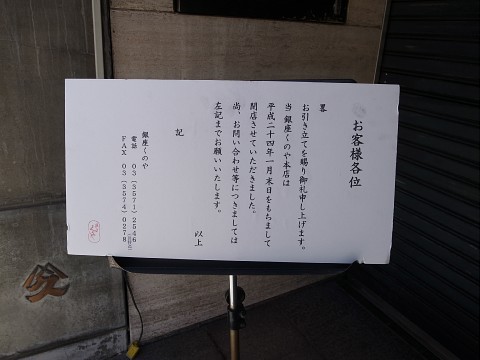 お客様各位
畧
お引き立てを賜り御礼申し上げます。
当 銀座くのや本店は
平成二十四年一月末日をもちまして
閉店させていただきました。
尚、お問い合わせ等につきましては
左記までお願いいたします。
以上
記
銀座くのや
電話 03（3571）2546
FAX 03（3574）0278